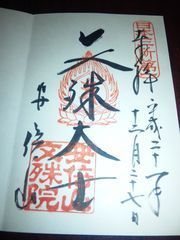 奉拝 平成二十一年
十二月二十七日
文殊大士
安倍山
文殊院